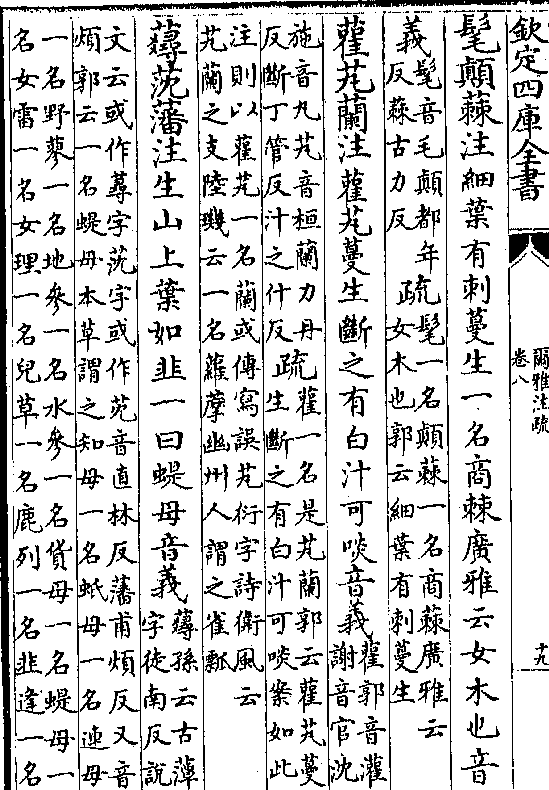 欽定四庫全書
爾雅注疏
卷八
十九
髦顛蕀注細葉有刺蔓生一名商蕀廣雅云女木也音
義髦音毛顛都年反蕀古力反疏髦一名顛蕀一名商蕀廣雅云女木也郭云細葉有刺蔓生
雚芄蘭注雚芄蔓生斷之有白汁可啖音義雚郭音灌謝音官沈
施音丸芄音桓蘭力丹反斷丁管反汁之什反疏雚一名是芄蘭郭云雚芄蔓生斷之有白汁可啖案如此
注則以雚芄一名蘭或傳寫誤芄衍字詩衛風云芄蘭之支陸璣云一名蘿摩幽州人謂之雀瓢
蕁莐藩注生山上葉如韭一曰蝭母音義蕁孫云古藫字徒南反說
文云或作蕁字莐字或作茓音直林反藩甫煩反又音煩郭云一名蝭母本草謂之知母一名蚔母一名連母
一名野蓼一名地參一名水參一名貨母一名蝭母一名女雷一名女理一名兒草一名鹿列一名韭逢一名